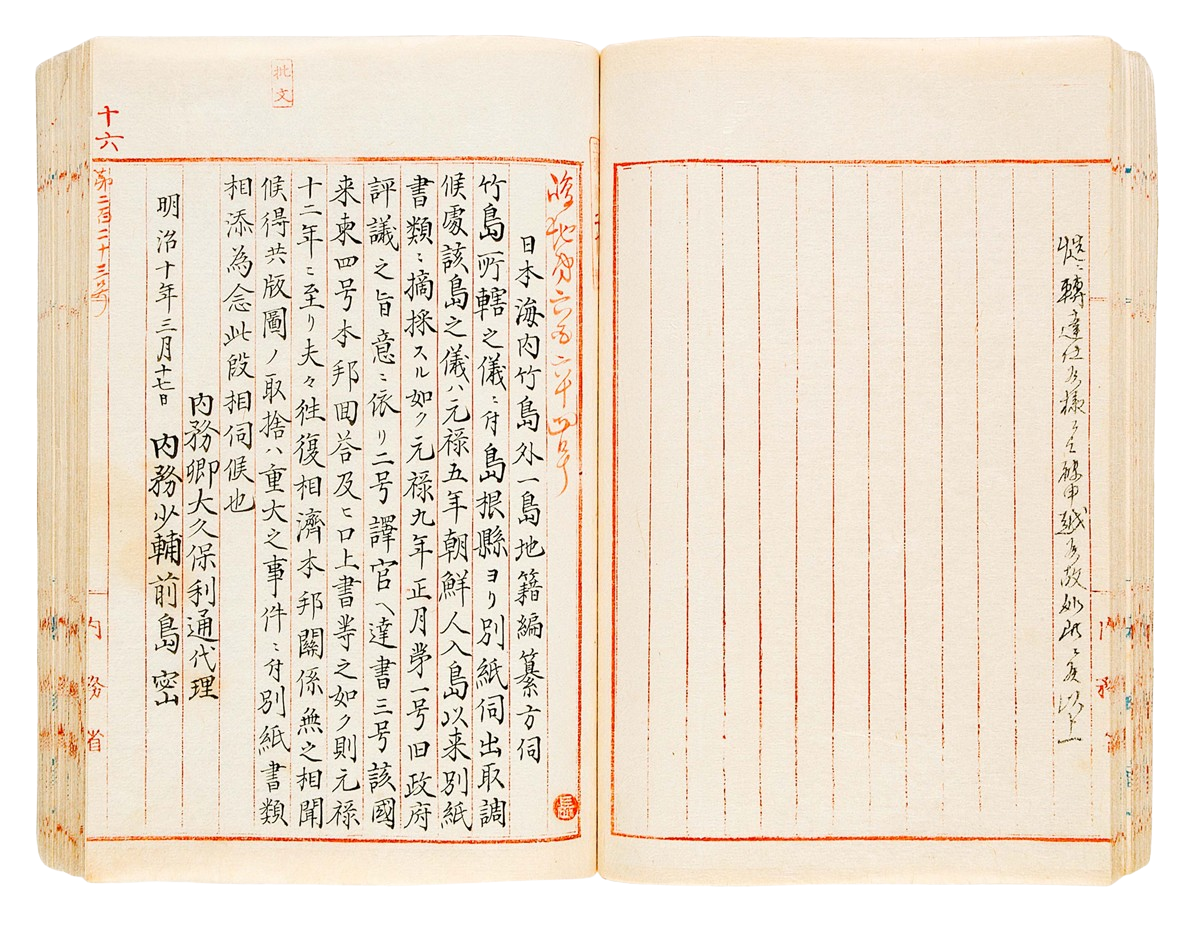 日本海内竹島外一島地籍編纂方伺
竹島所轄之儀ニ付島根縣ヨリ別紙伺出取調
候處該島之儀ハ元禄五年朝鮮人入島以来別紙
書類ニ摘採スル如ク元禄九年正月第一号旧政府
評議之旨意ニ依リ二号譯官ヘ達書三号該國
来柬四号本邦回答及ヒ口上書等之如ク則元禄
十二年ニ至リ夫々徃復相濟本邦關係無之相聞
候得共版圖ノ取捨ハ重大之事件ニ付別紙書類
相添為念此段相伺候也
内務卿大久保利通代理
明治十年三月十七日 内務少輔前島密
批文
十六
第二百二十三号
内務省